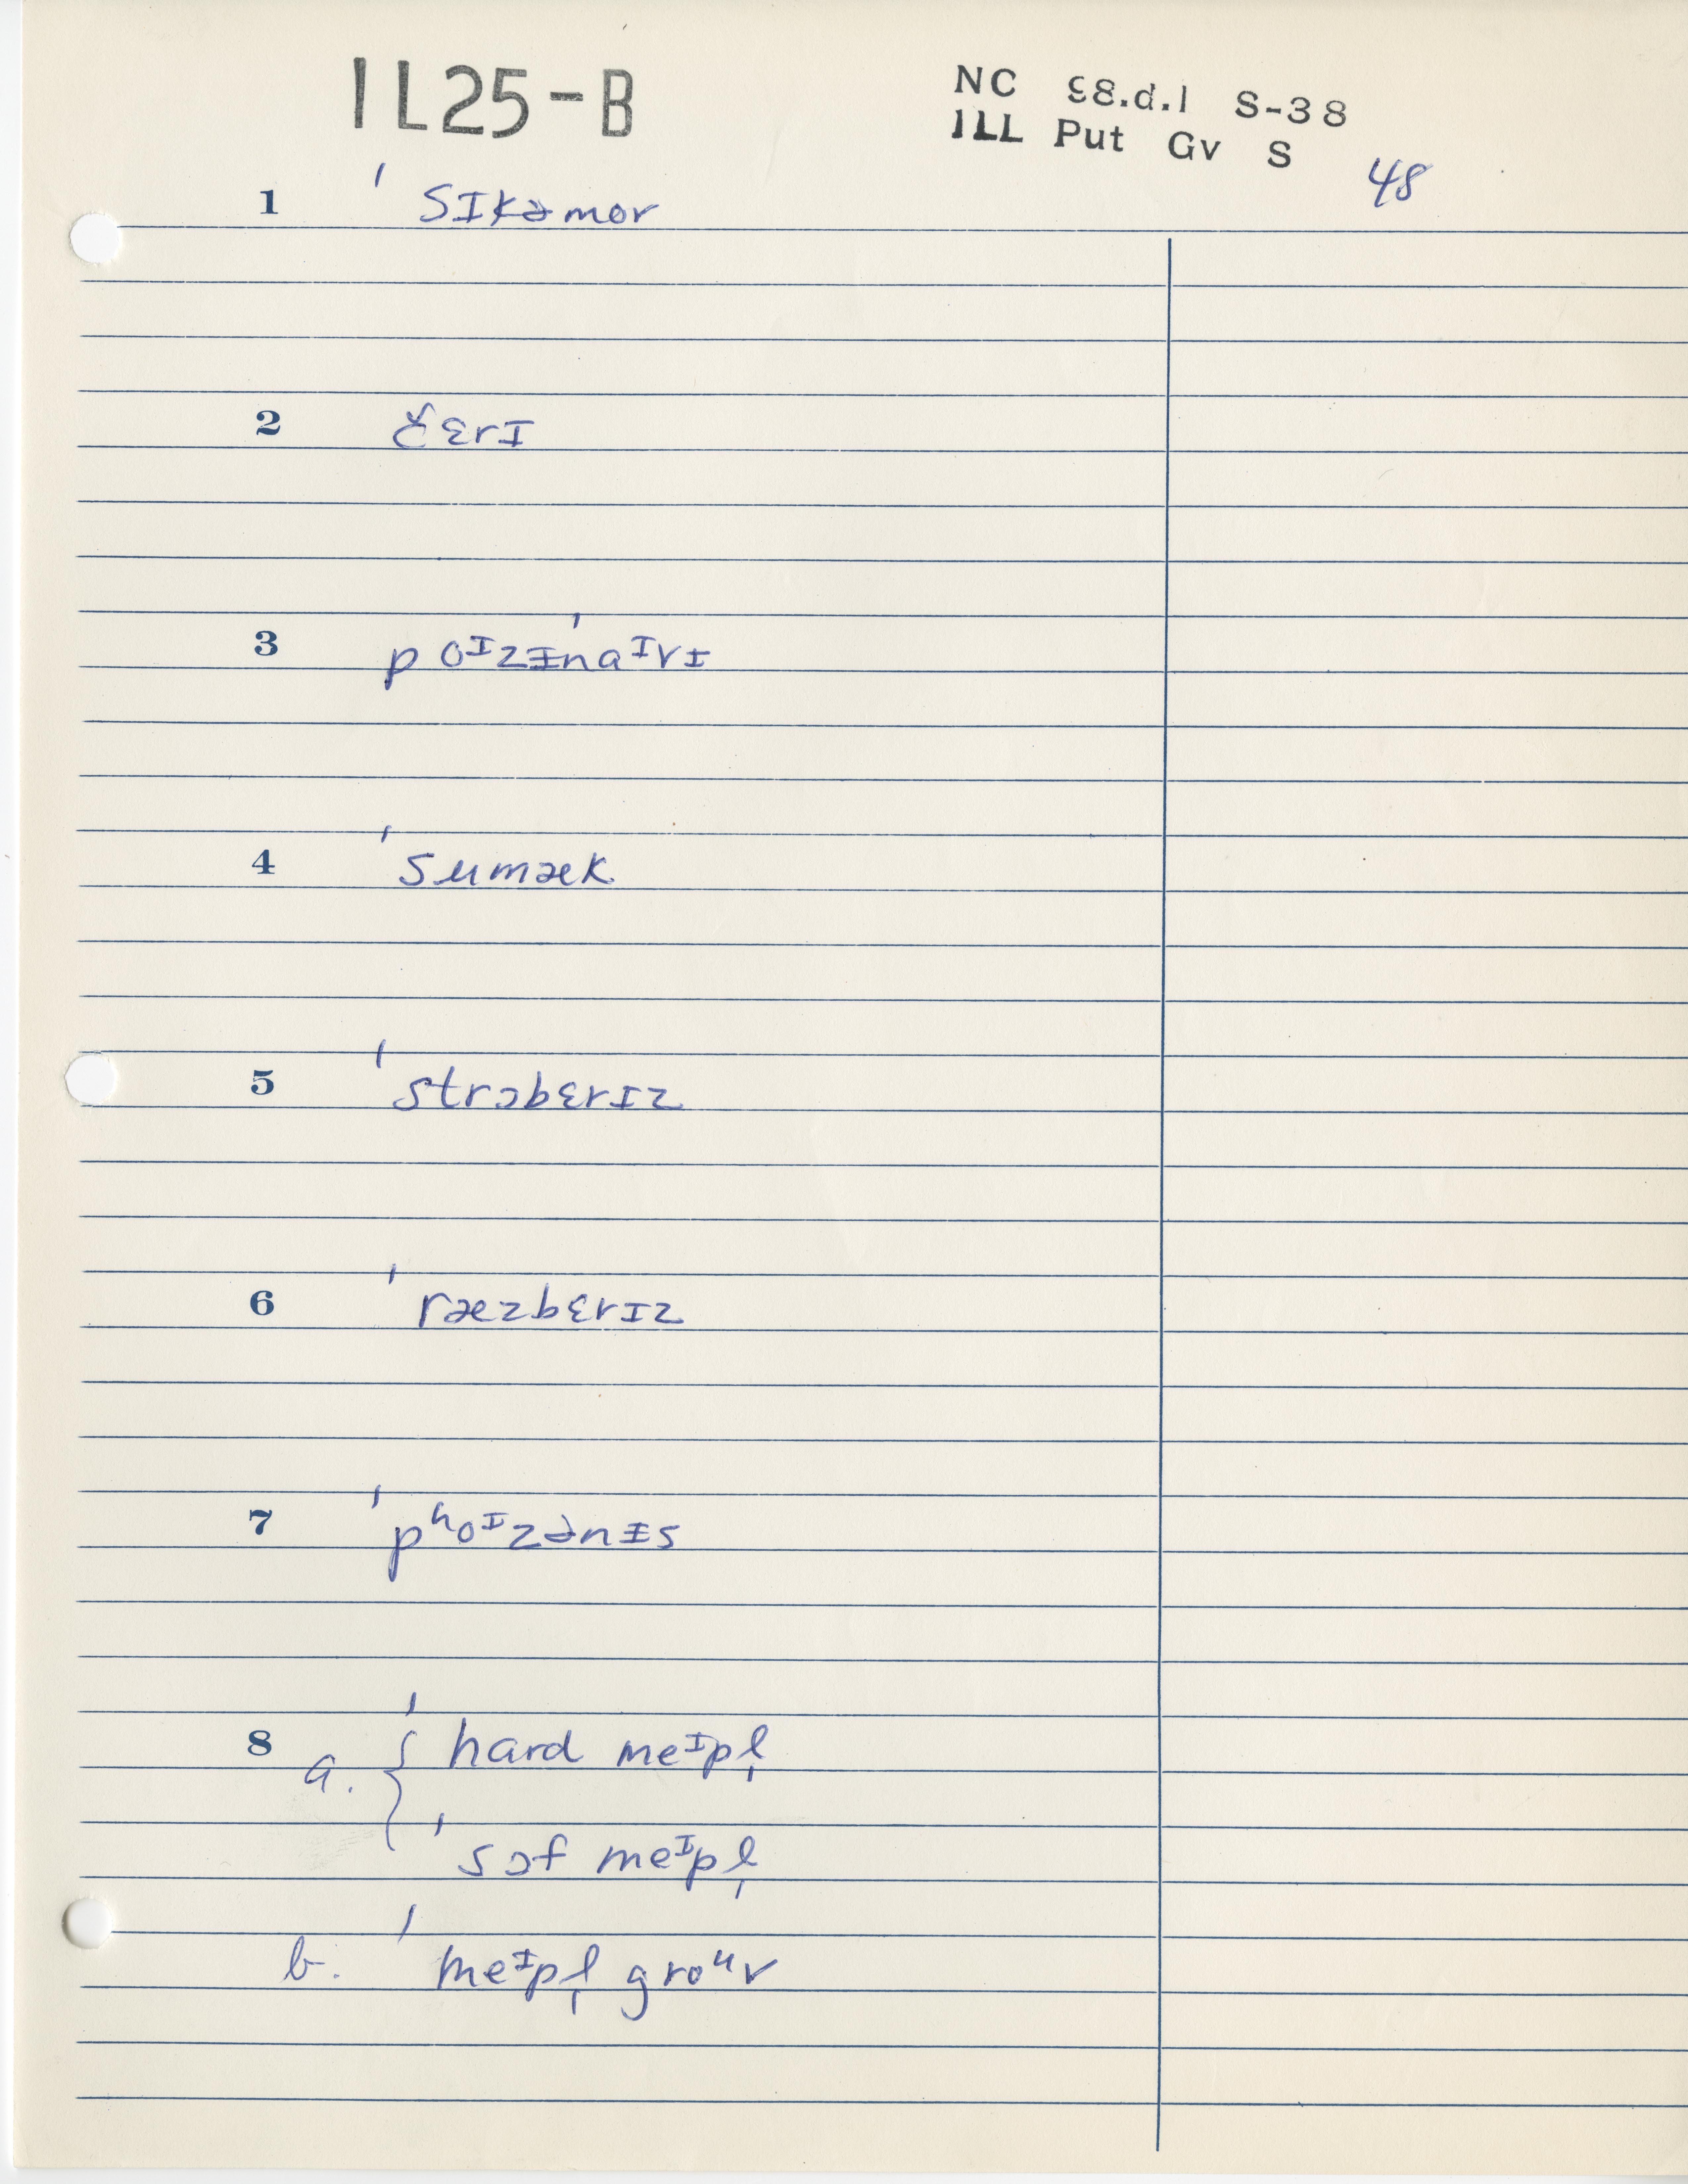 IL25-B
NC 98.d.1 S-38
ILL Put Gv S
48
1 ˈsɪkəmor
2 č̬ɛrɪ
3 poᴵzɨnˈaᴵvɪ
4 ˈsumæk
5 ˈstrɔbɛrɪz
6 ˈræzbɛrɪz
7 ˈpʰoᴵzənɨs
8 a. { ˈhard meᴵpl̩
ˈsɔf meᴵpl̩
b. ˈmeᴵpl̩ groᵘv